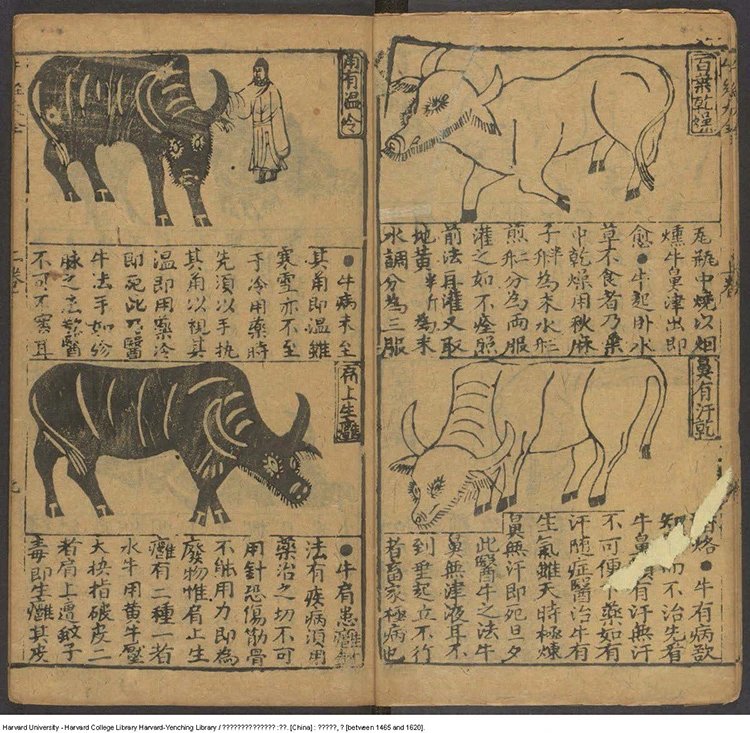 百葉乾燥
瓦瓶中燒以烟
燻牛鼻津出即
愈●牛起卧水
草不食者乃葉
巾乾燥用秋麻
子為末水
煎分為两服
灌之如不痊照
前法再灌又取
地黄半斤為末
水調分為三服
鼻有汗乾
●牛有病欲
知而不治先看
牛鼻有汗無汗
不可便下藥如有
汗随症醫治牛有
生氣雖天時極煉
鼻無汗即死旦夕
此醫牛之法牛
鼻無津液耳不
到垂起立不行
者畜家極病也
角有温冷
●牛病未至
其角即温雖
寒雪亦不至
于冷用藥時
先須以手执
其角以視其
温即用藥冷
即死此乃醫
牛法手如診
脉之法醫
不可不察耳
肩上生癰
●牛肩患癰
法有疾病須用
藥治之切不可
用針恐傷筋骨
不能用力即為
廢物惟肩上生
癰有二種一者
水牛用黄牛壓
大指破皮二
者肩上遭蚊子
毒即生癰其皮
二卷
九
Harvard University - Harvard College Library Harvard-Yenching Library / ?????????????? :??. [China] : ?????, ? [between 1465 and 1620].